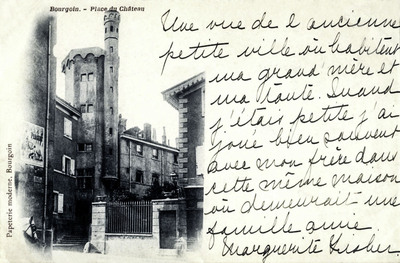 Bourgoin. - Place du Château
Une vue de l'ancienne
petite ville où habitent
ma grand'mère et
ma tante. Quand
j'étais petite j'ai
joué bien souvent
avec mon frère dans
cette même maison
où demeurait une
famille amie.
Marguerite
Papeterie moderne, Bourgoin